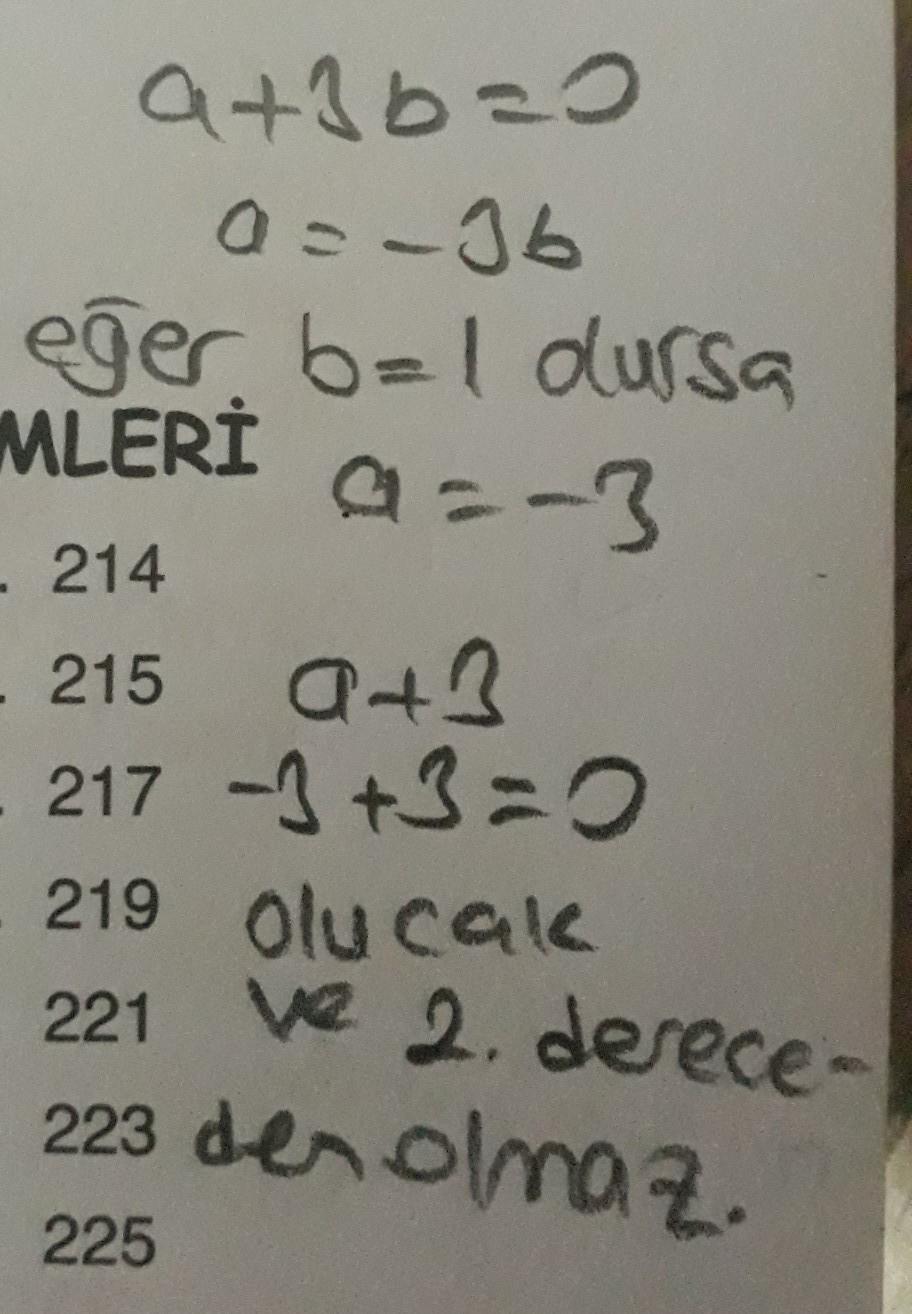 a+3b=0
a=-3b
eğer b=1 dursa
MLERİ
a=-3
. 214
. 215
a+3
. 217
-3+3=0
. 219
olucak
221
ve 2. derece-
223
den olmaz.
225